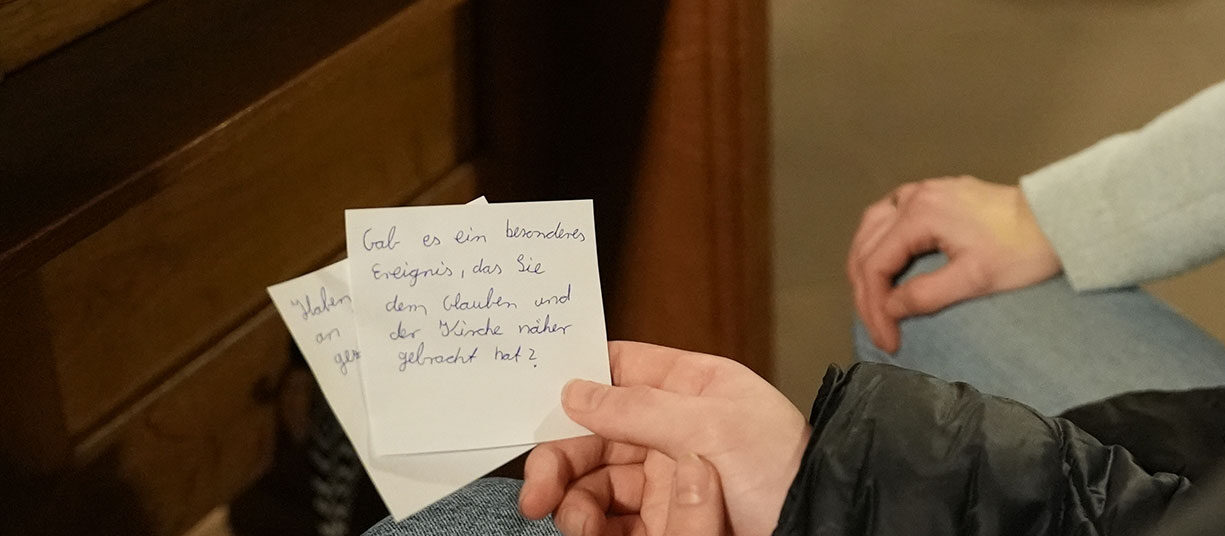 Gab es ein besonderes
Ereignis, das Sie
dem Glauben und
der Kirche näher
gebracht hat?
Haben
an